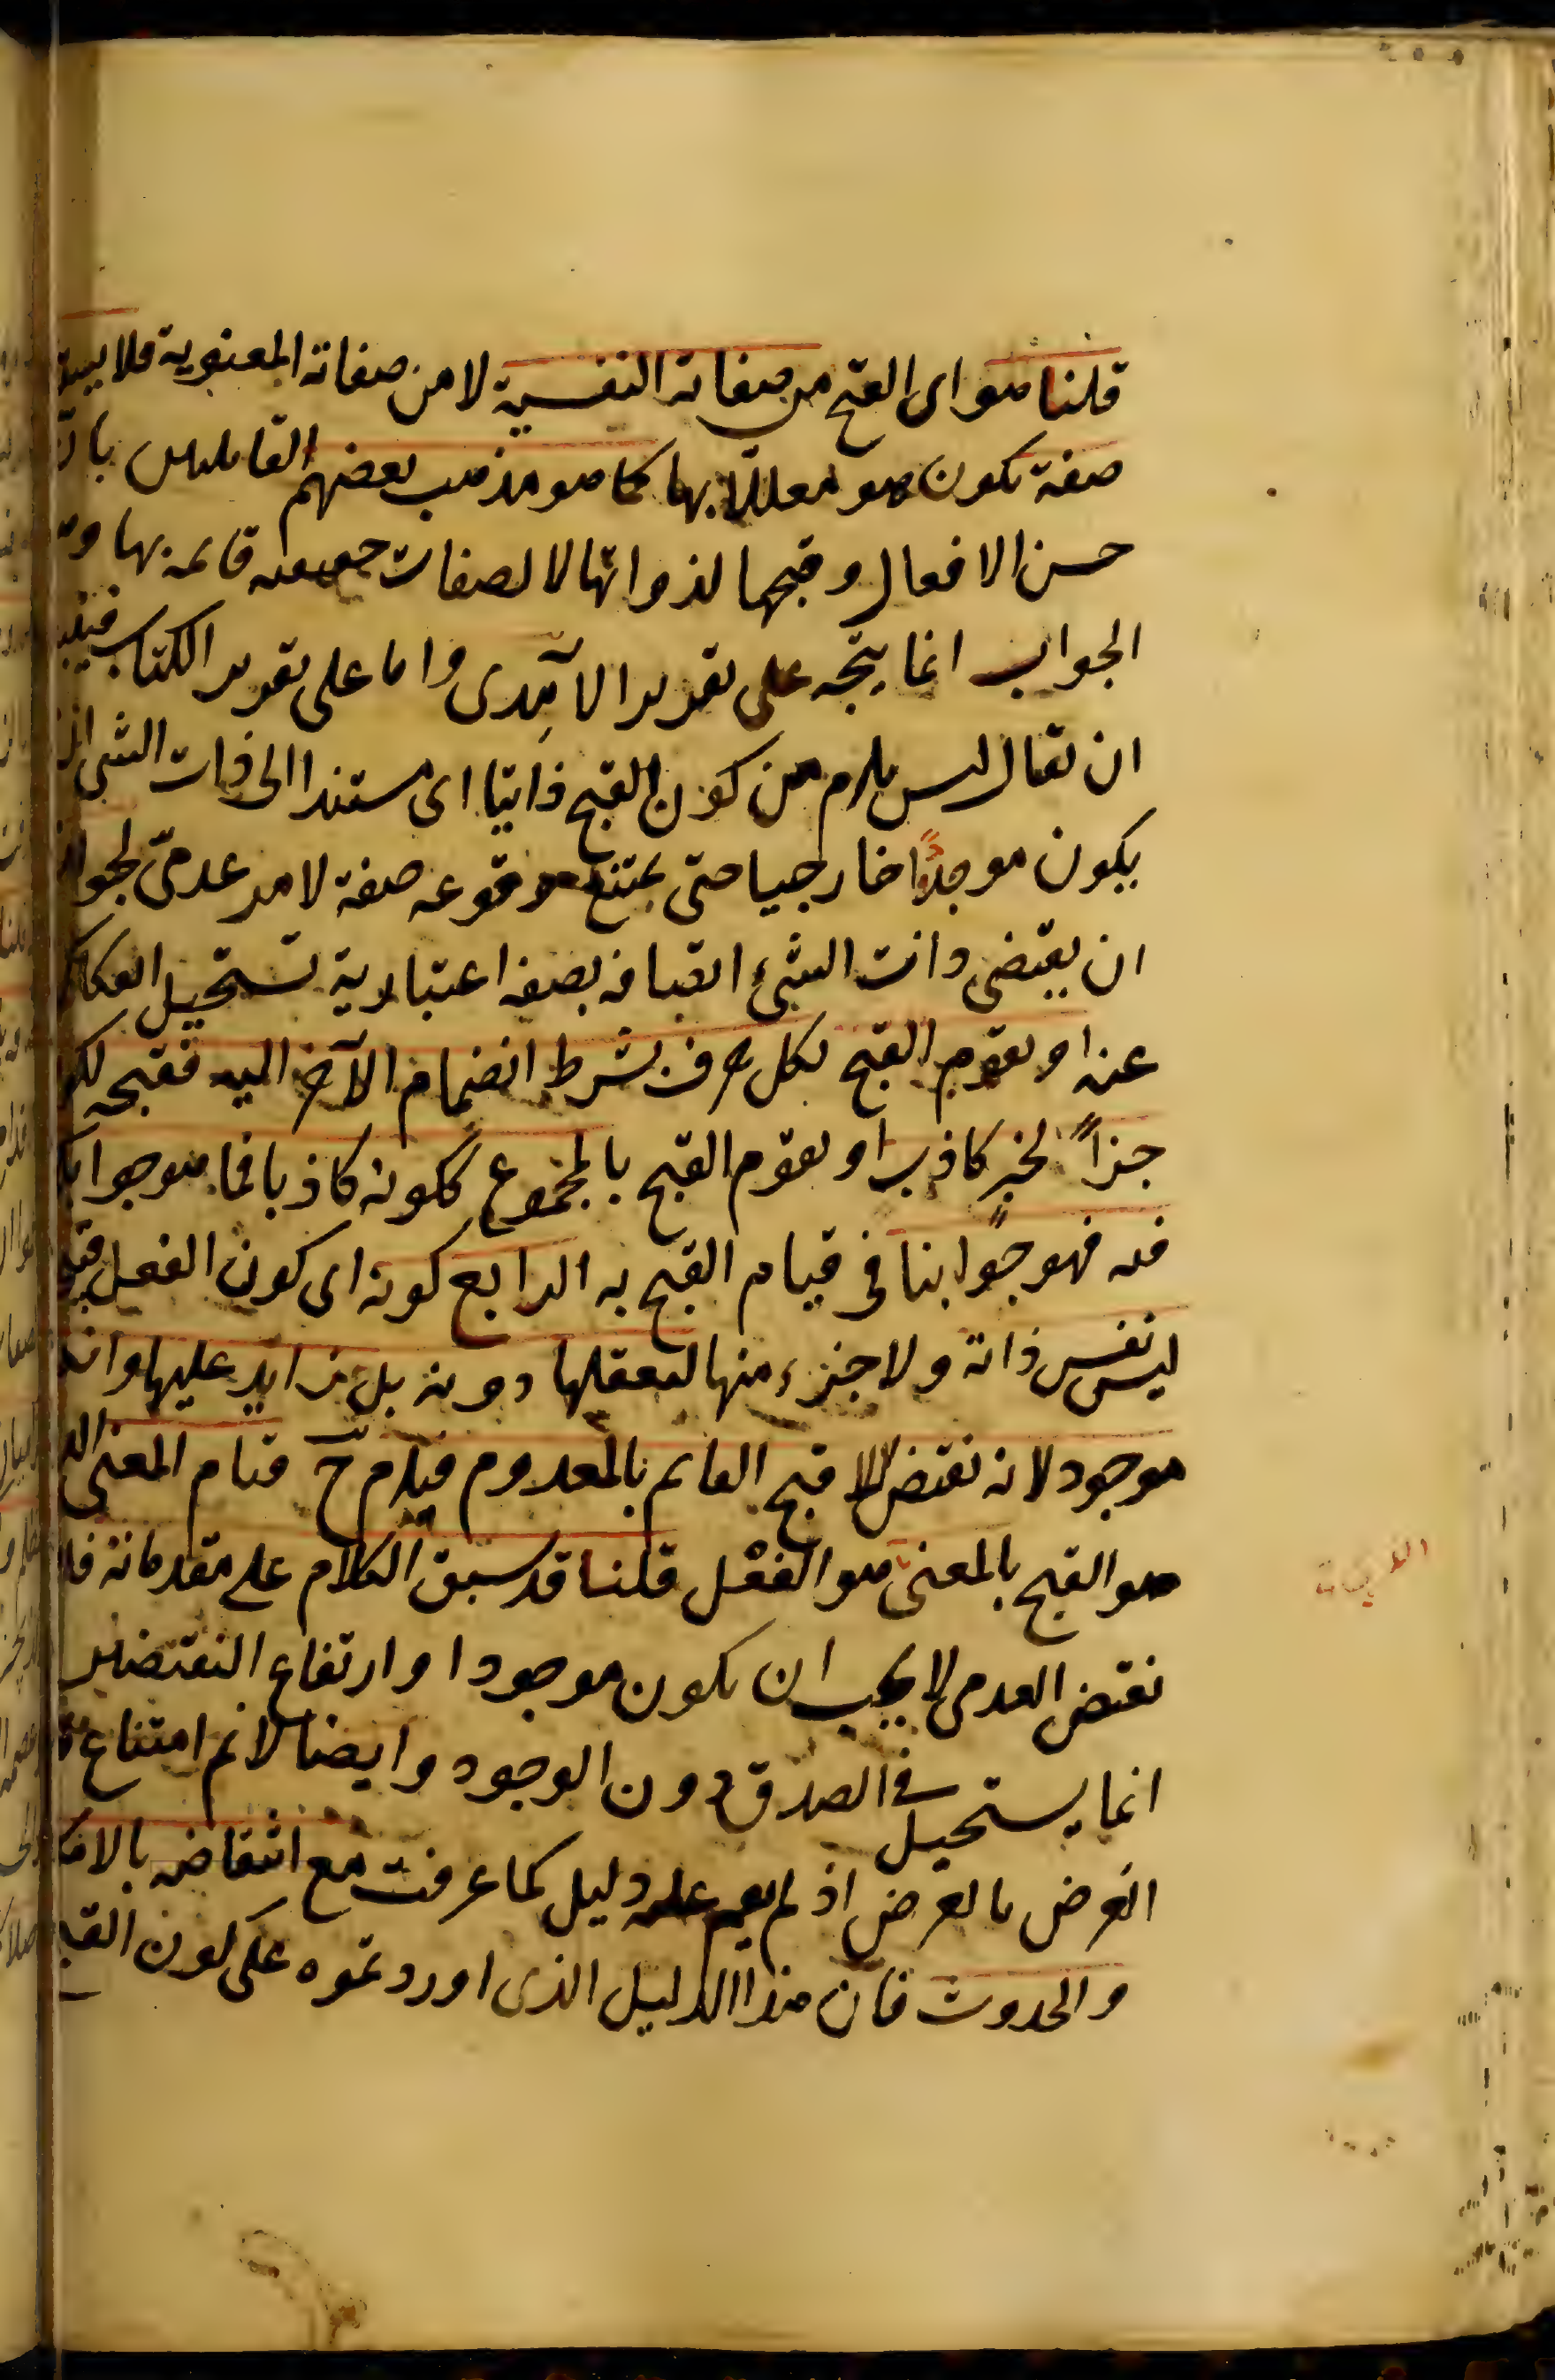 قلنا هو اى القبح من صفاته النفسية لا من صفاته المعنوية فلا
صفة يكون هو معللا بها كما هو مذهب بعضهم القايلين بان
حسن الافعال وقبحها لذواتها لا لصفات حقيقية قايمة بها
الجواب انما يتجه على تقرير الآمدى واما على تقرير الكتاب
ان يقال ليس يلزم من كون القبح ذاتيا اى مستندا الى ذات الشى ان
يكون موجودا خارجيا حتى يمتنع وقوعه صفة لامر عدمىّ لجواز
ان يقتضى ذات الشئ اتصافه بصفة اعتبارية تستحيل
عنه او يقوم القبح بكل حرف بشرط انضمام الآخر اليه فقبحه
جزاً لخبر كاذب او يقوم القبح بالمجموع لكونه كاذبا فما هو جوابكم
فيه فهو جوابنا فى قيام القبح به الرابع كونه اى كون الفعل
ليس نفس ذاته ولا جزء منها لتعقلها دونه بل زايد عليها وانه
موجود لانه نقيض اللا قبح القايم بالمعدوم فيلزم ح قيام المعنى
هو القبح بالمعنى هو الفعل قلنا قد سبق الكلام على مقدماته
نقيض العدمى لا يجب ان يكون موجودا وارتفاع النقيضين
انما يستحيل فى الصدق دون الوجود وايضا لا نم امتناع
العرض بالعرض اذ لم يقم عليه دليل كما عرفت مع انتقاضه
والحدوث فان هذا الدليل الذى اوردتموه على كون